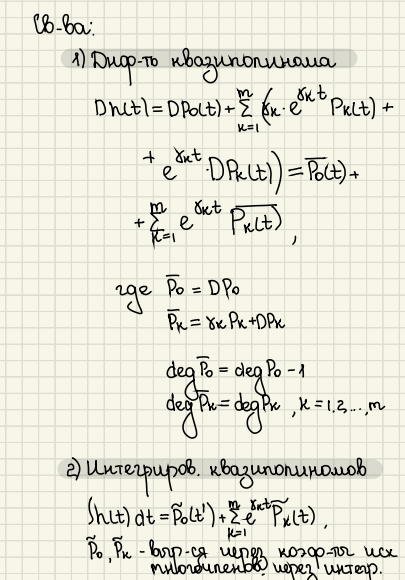 Св-ва:
1) Диф-ть квазиполинома
Dh(t) = DP₀(t) + Σ_{k=1}^{m} (γₖ · e^{γₖt} Pₖ(t) +
+ e^{γₖt} · DPₖ(t)) = P̄₀(t) +
+ Σ_{k=1}^{m} e^{γₖt} P̄ₖ(t) ,
где P̄₀ = DP₀
P̄ₖ = γₖPₖ + DPₖ
deg P̄₀ = deg P₀ - 1
deg P̄ₖ = deg Pₖ , k = 1,2,..,m
2) Интегриров. квазиполиномов
∫h(t) dt = P̃₀(t') + Σ_{k=1}^{m} e^{γₖt} P̃ₖ(t) ,
P̃₀, P̃ₖ - выр-ся через коэф-ты исх
многочленов через интегр.